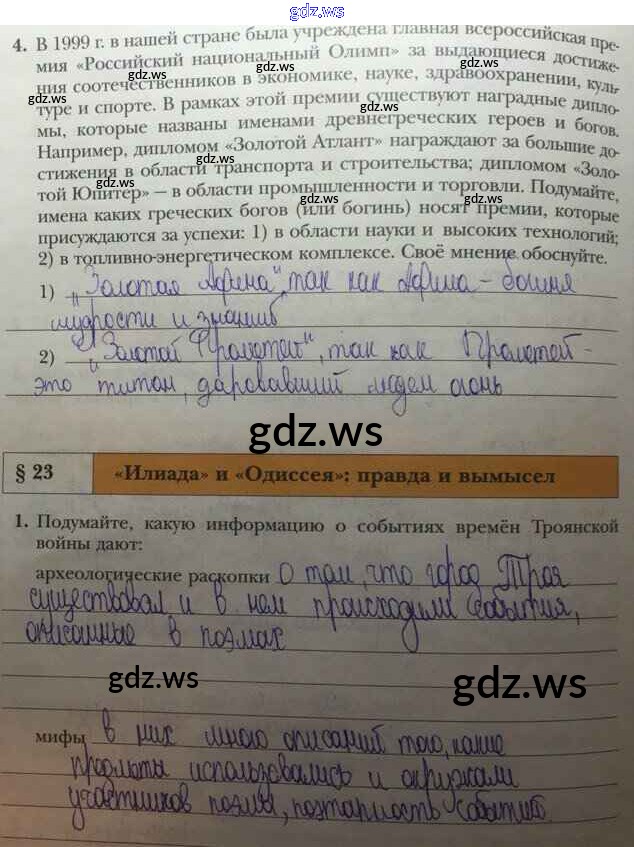 gdz.ws
4. В 1999 г. в нашей стране была учреждена главная всероссийская пре-
мия «Российский национальный Олимп» за выдающиеся достиже-
gdz.ws gdz.ws
ния соотечественников в экономике, науке, здравоохранении, куль-
туре и спорте. В рамках этой премии существуют наградные дипло-
gdz.ws
мы, которые названы именами древнегреческих героев и богов.
Например, дипломом «Золотой Атлант» награждают за большие до-
стижения в области транспорта и строительства; дипломом «Золо-
gdz.ws
той Юпитер» — в области промышленности и торговли. Подумайте,
имена каких греческих богов (или богинь) носят премии, которые
gdz.ws
присуждаются за успехи: 1) в области науки и высоких технологий;
2) в топливно-энергетическом комплексе. Своё мнение обоснуйте.
1) „Золотая Афина", так как Афина - богиня
мудрости и знаний
2) „Золотой Прометей", так как Прометей -
это титан, даровавший людям огонь
gdz.ws
§ 23 «Илиада» и «Одиссея»: правда и вымысел
1. Подумайте, какую информацию о событиях времён Троянской
войны дают:
археологические раскопки о том, что город Троя
существовал и в нем происходили события,
описанные в поэмах
gdz.ws gdz.ws
мифы в них много описаний того, какие
предметы использовались и окружали
участников поэмы, поэтапность событий